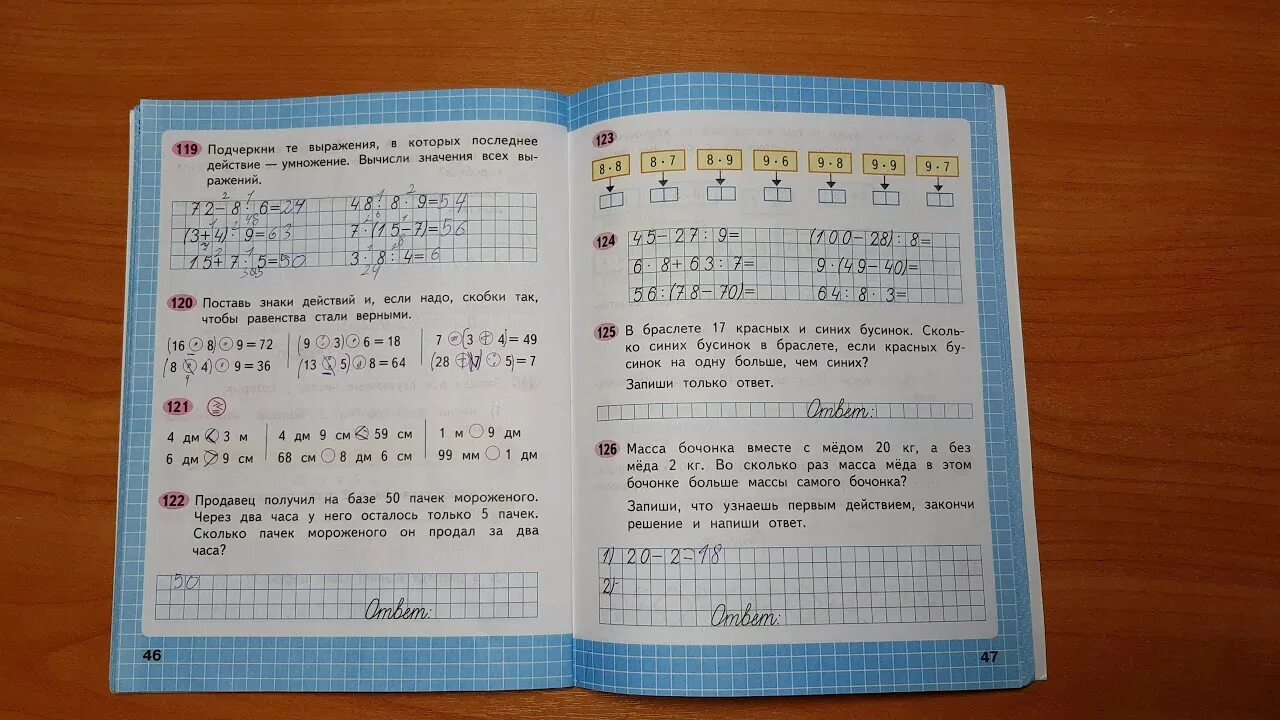 119 Подчеркни те выражения, в которых последнее
действие — умножение. Вычисли значения всех вы-
ражений.
72-8:6=24 48:8·9=54
(3+4)·9=63 7·(15-7)=56
15+7·5=50 3·8:4=6
120 Поставь знаки действий и, если надо, скобки так,
чтобы равенства стали верными.
(16 : 8) · 9 = 72 (9 : 3) · 6 = 18 7 · (3 + 4) = 49
(8 4) 9 = 36 (13 5) 8 = 64 (28 + 7) : 5) = 7
121
4 дм < 3 м 4 дм 9 см < 59 см 1 м 9 дм
6 дм > 9 см 68 см 8 дм 6 см 99 мм 1 дм
122 Продавец получил на базе 50 пачек мороженого.
Через два часа у него осталось только 5 пачек.
Сколько пачек мороженого он продал за два
часа?
50
Ответ:
46
123
8·8 8·7 8·9 9·6 9·8 9·9 9·7
124 45-27:9= (100-28):8=
6·8+63:7= 9·(49-40)=
56:(78-70)= 64:8·3=
125 В браслете 17 красных и синих бусинок. Сколь-
ко синих бусинок в браслете, если красных бу-
синок на одну больше, чем синих?
Запиши только ответ.
Ответ:
126 Масса бочонка вместе с мёдом 20 кг, а без
мёда 2 кг. Во сколько раз масса мёда в этом
бочонке больше массы самого бочонка?
Запиши, что узнаешь первым действием, закончи
решение и напиши ответ.
1) 20-2=18
2)
Ответ:
47